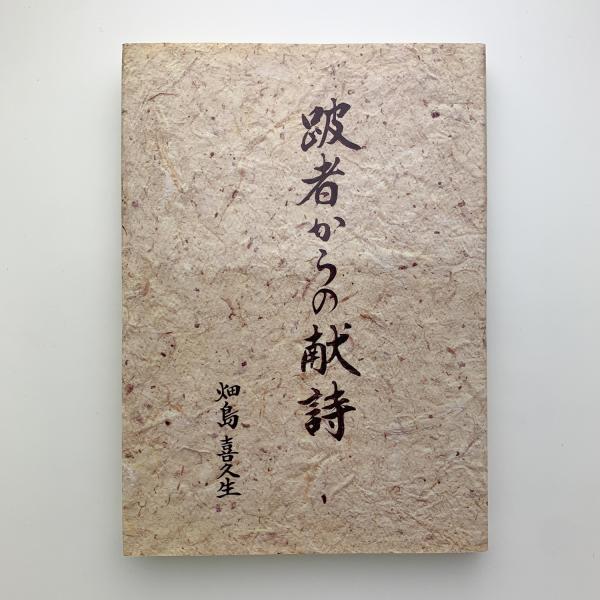 跛者からの献詩
畑島喜久生